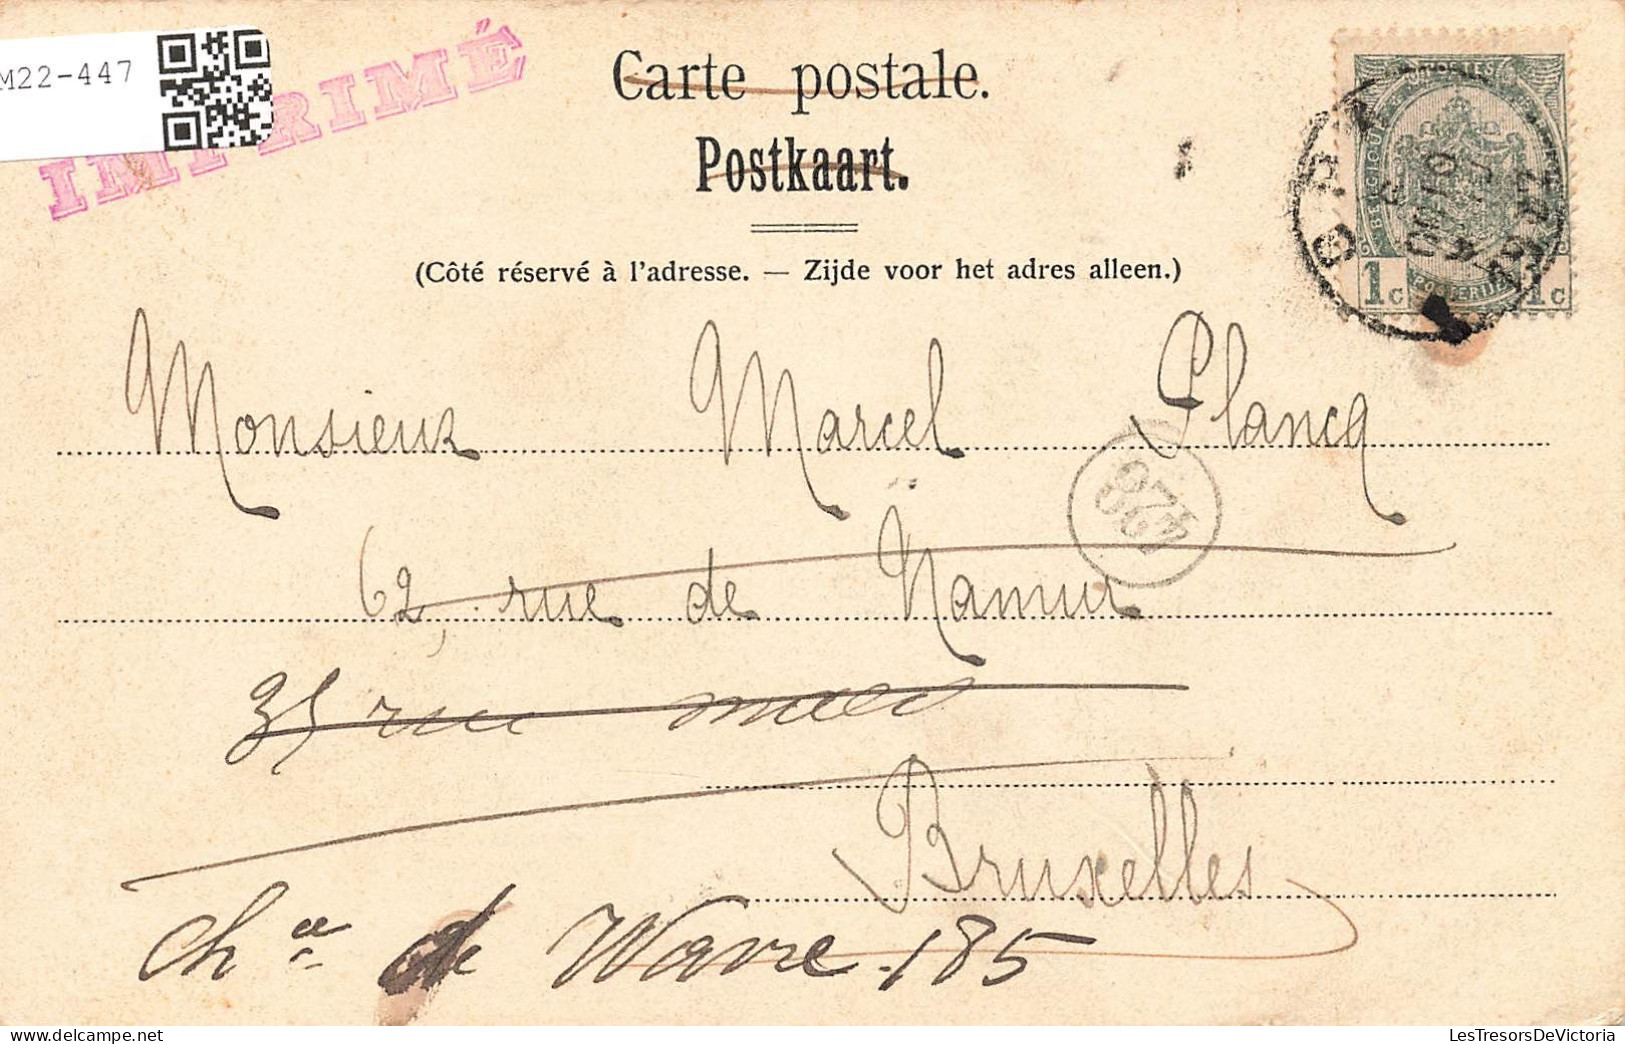 M22-447
IMPRIMÉ
Carte postale.
Postkaart.
(Côté réservé à l'adresse. — Zijde voor het adres alleen.)
POSTES
BELGIQUE
POSTERIJEN
1c 1c
Monsieur Marcel Plancq
428
62, rue de Namur
35 rue
Bruxelles
Chée de Wavre 185
LesTresorsDeVictoria